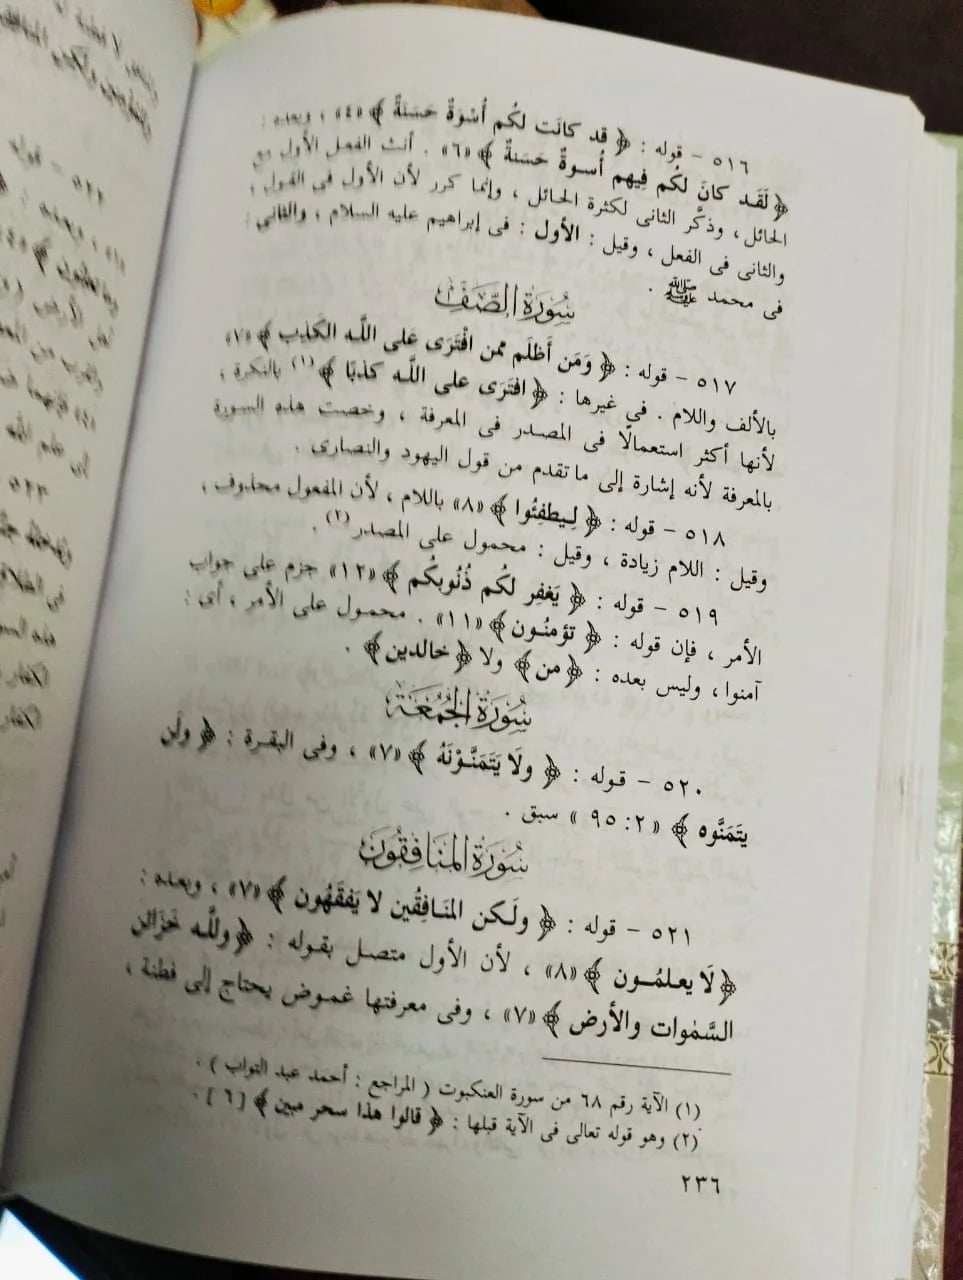 ٥١٦ – قوله : ﴿ قد كانَت لكُم أُسْوَةٌ حَسَنةٌ ﴾ «٤» ، وبعده :
﴿ لَقَد كانَ لكُم فِيهم أُسوةٌ حَسَنةٌ ﴾ «٦» . أنث الفعل الأول مع
الحائل ، وذكَّر الثانى لكثرة الحائل ، وإنما كرر لأن الأول فى القول ،
والثانى فى الفعل ، وقيل : الأول : فى إبراهيم عليه السلام ، والثانى :
فى محمد ﷺ .
سُورَةُ الصَّفِّ
٥١٧ – قوله : ﴿ وَمَن أَظلَم ممن افْتَرَى عَلى اللَّه الكَذِب ﴾ «٧»
بالألف واللام . فى غيرها : ﴿ افتَرَى على اللَّه كذبًا ﴾ (١) بالنكرة ،
لأنها أكثر استعمالًا فى المصدر فى المعرفة ، وخصت هذه السورة
بالمعرفة لأنه إشارة إلى ما تقدم من قول اليهود والنصارى .
٥١٨ – قوله : ﴿ لِيطفِئُوا ﴾ «٨» باللام ، لأن المفعول محذوف ،
وقيل : اللام زيادة ، وقيل : محمول على المصدر (٢) .
٥١٩ – قوله : ﴿ يَغفِر لكُم ذُنُوبكُم ﴾ «١٢» جزم على جواب
الأمر ، فإن قوله : ﴿ تؤمنُون ﴾ «١١» . محمول على الأمر ، أى :
آمنوا ، وليس بعده : ﴿ من ﴾ ولا ﴿ خالدين ﴾ .
سُورَةُ الجُمُعَةِ
٥٢٠ – قوله : ﴿ ولَا يَتَمَنَّوْنَهُ ﴾ «٧» ، وفى البقرة : ﴿ ولَن
يتَمَنَّوه ﴾ « ٢ : ٩٥ » سبق .
سُورَةُ المنَافِقُون
٥٢١ – قوله : ﴿ ولَكن المنَافقِين لا يَفقَهُون ﴾ «٧» ، وبعده :
﴿ لَا يعلمُون ﴾ «٨» ، لأن الأول متصل بقوله : ﴿ وللَّه خَزَائن
السَّمٰوات والأرض ﴾ «٧» ، وفى معرفتها غموض يحتاج إلى فطنة ،
(١) الآية رقم ٦٨ من سورة العنكبوت ( المراجع : أحمد عبد التواب ) .
(٢) وهو قوله تعالى فى الآية قبلها : ﴿ قالوا هذا سحر مبين ﴾ [ ٦ ] .
٢٣٦